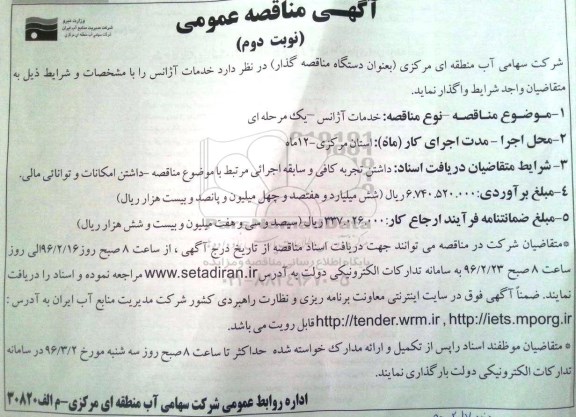 وزارت نیرو
شرکت مدیریت منابع آب ایران
شرکت سهامی آب منطقه ای مرکزی
آگهی مناقصه عمومی
(نوبت دوم)
شرکت سهامی آب منطقه ای مرکزی (بعنوان دستگاه مناقصه گذار) در نظر دارد خدمات آژانس را با مشخصات و شرایط ذیل به
متقاضیان واجد شرایط واگذار نماید.
۱-موضوع مناقصه -نوع مناقصه: خدمات آژانس -یک مرحله ای
۲-محل اجرا - مدت اجرای کار (ماه): استان مرکزی -۱۲ماه
۳- شرایط متقاضیان دریافت اسناد: داشتن تجربه کافی و سابقه اجرائی مرتبط با موضوع مناقصه -داشتن امکانات و توانائی مالی.
۴-مبلغ برآوردی: ۶.۷۴۰.۵۲۰.۰۰۰ ریال (شش میلیارد و هفتصد و چهل میلیون و پانصد و بیست هزار ریال)
۵-مبلغ ضمانتنامه فرآیند ارجاع کار: ۳۳۷.۰۲۶.۰۰۰ ریال (سیصد و سی و هفت میلیون و بیست و شش هزار ریال)
*متقاضیان شرکت در مناقصه می توانند جهت دریافت اسناد مناقصه از تاریخ درج آگهی ، از ساعت ۸ صبح روز ۹۶/۲/۱۶الی روز
ساعت ۸ صبح ۹۶/۲/۲۳ به سامانه تدارکات الکترونیکی دولت به آدرس www.setadiran.ir مراجعه نموده و اسناد را دریافت
نمایند. ضمناً آگهی فوق در سایت اینترنتی معاونت برنامه ریزی و نظارت راهبردی کشور شرکت مدیریت منابع آب ایران به آدرس :
http://tender.wrm.ir , http://iets.mporg.ir قابل رویت می باشد.
* متقاضیان موظفند اسناد راپس از تکمیل و ارائه مدارک خواسته شده حداکثر تا ساعت ۸ صبح روز سه شنبه مورخ ۹۶/۳/۲ در سامانه
تدارکات الکترونیکی دولت بارگذاری نمایند.
اداره روابط عمومی شرکت سهامی آب منطقه ای مرکزی-م الف۳۰۸۲۰